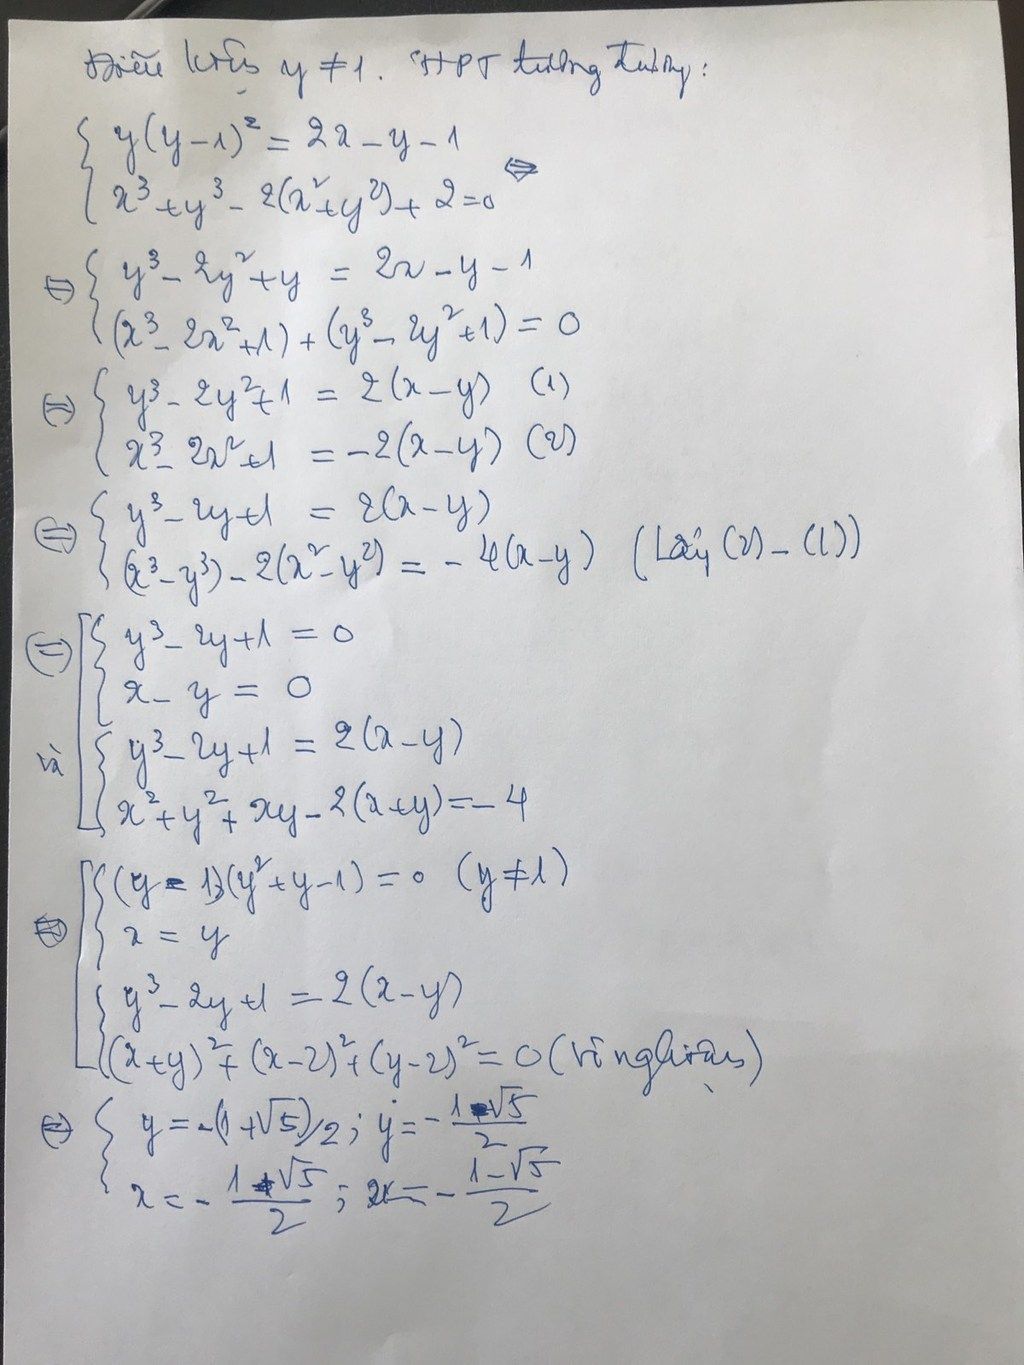 Điều kiện y ≠ 1. HPT tương đương:
y(y-1)² = 2x - y - 1
x³ + y³ - 2(x² + y²) + 2 = 0 ⇔
⇔ y³ - 2y² + y = 2x - y - 1
(x³ - 2x² + 1) + (y³ - 2y² + 1) = 0
⇔ y³ - 2y² + 1 = 2(x - y) (1)
x³ - 2x² + 1 = -2(x - y) (2)
⇔ y³ - 2y + 1 = 2(x - y)
(x³ - y³) - 2(x² - y²) = -4(x - y) (Lấy (2) - (1))
⇔ y³ - 2y + 1 = 0
x - y = 0
và y³ - 2y + 1 = 2(x - y)
x² + y² + xy - 2(x + y) = -4
⇔ (y - 1)(y² + y - 1) = 0 (y ≠ 1)
x = y
y³ - 2y + 1 = 2(x - y)
(x + y)² + (x - 2)² + (y - 2)² = 0 (Vô nghiệm)
⇔ y = -(1 + √5)/2 ; y = -(1 - √5)/2
x = -(1 + √5)/2 ; x = -(1 - √5)/2